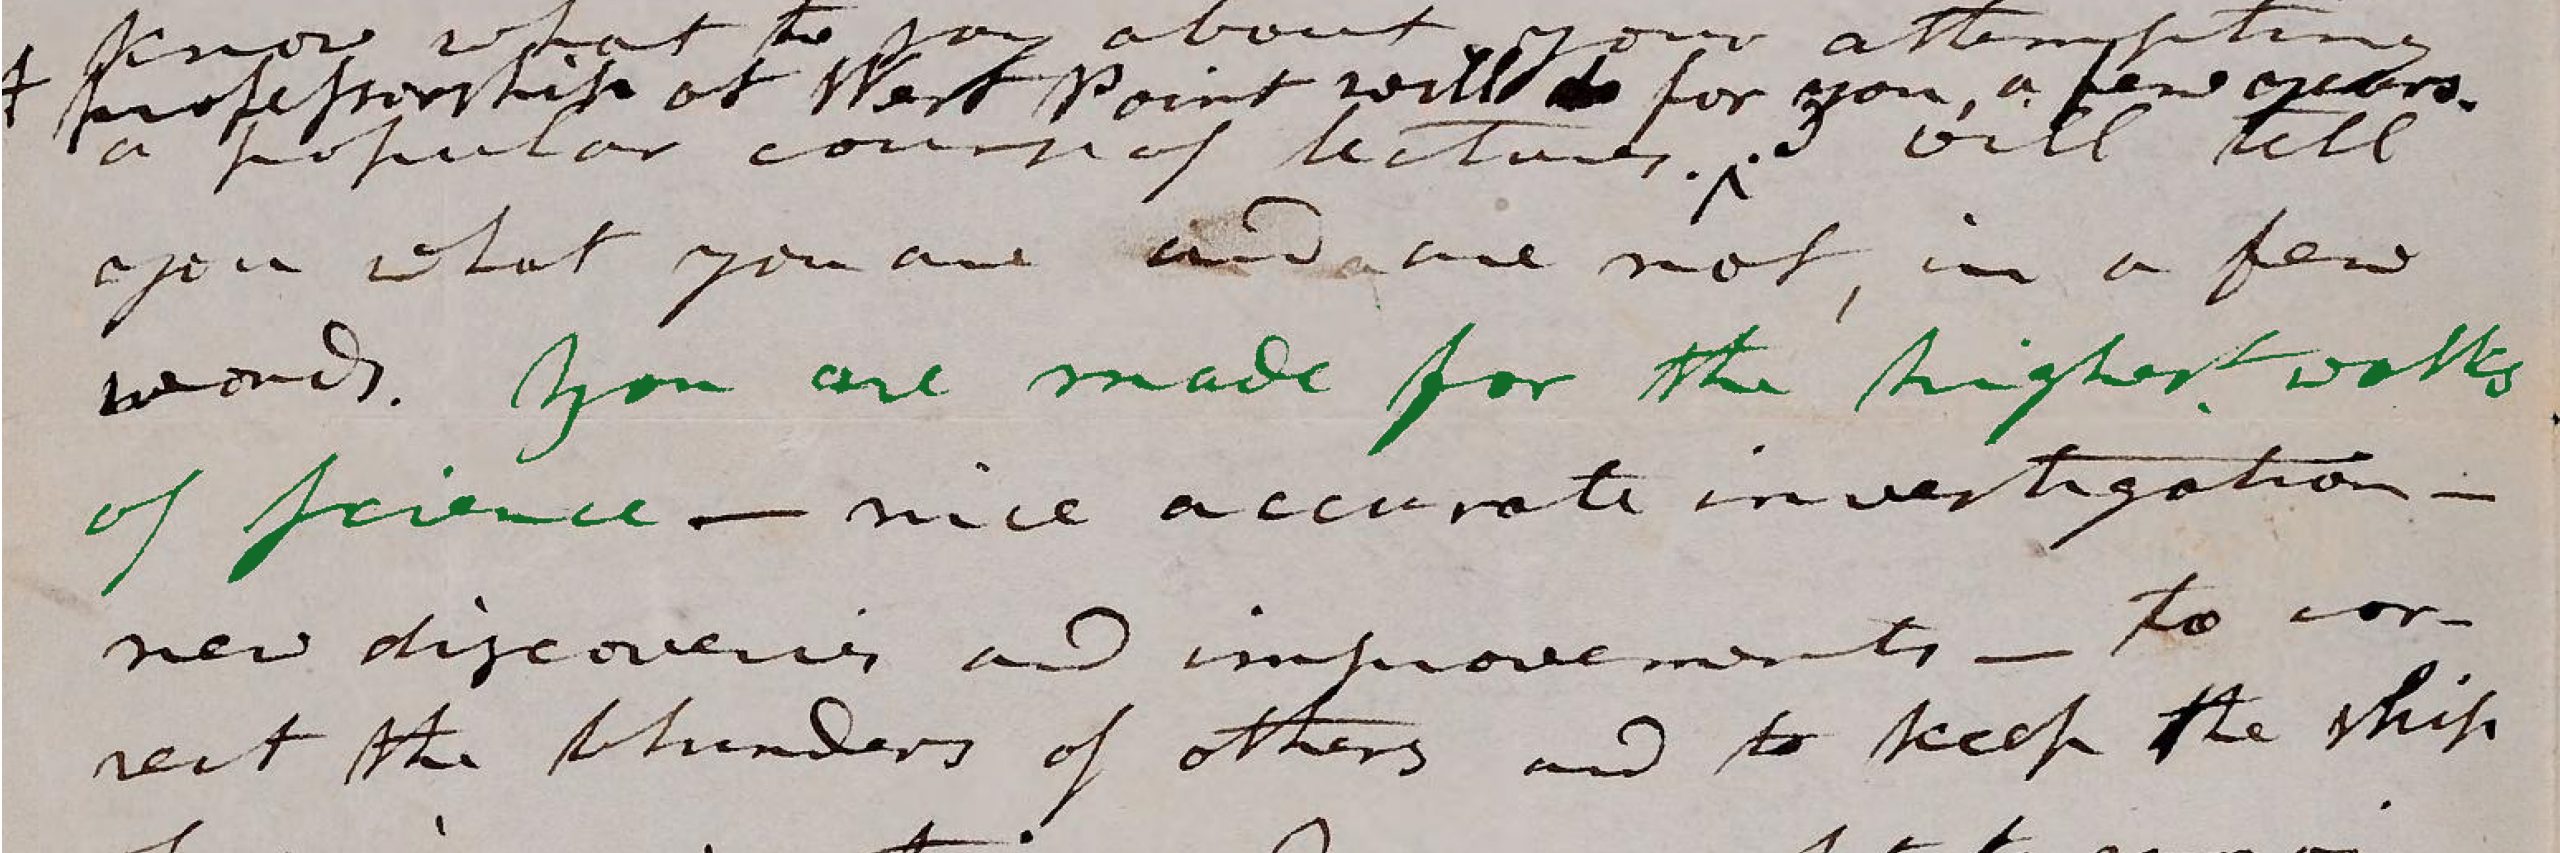 know what to say about your attempting
A professorship at West Point will do for you, a few years.
a popular course of lectures. ^ I will tell
you what you are and are not, in a few
words. You are made for the highest walks
of science — nice accurate investigation —
new discoveries and improvements — to cor-
rect the blunders of others and to keep the ship